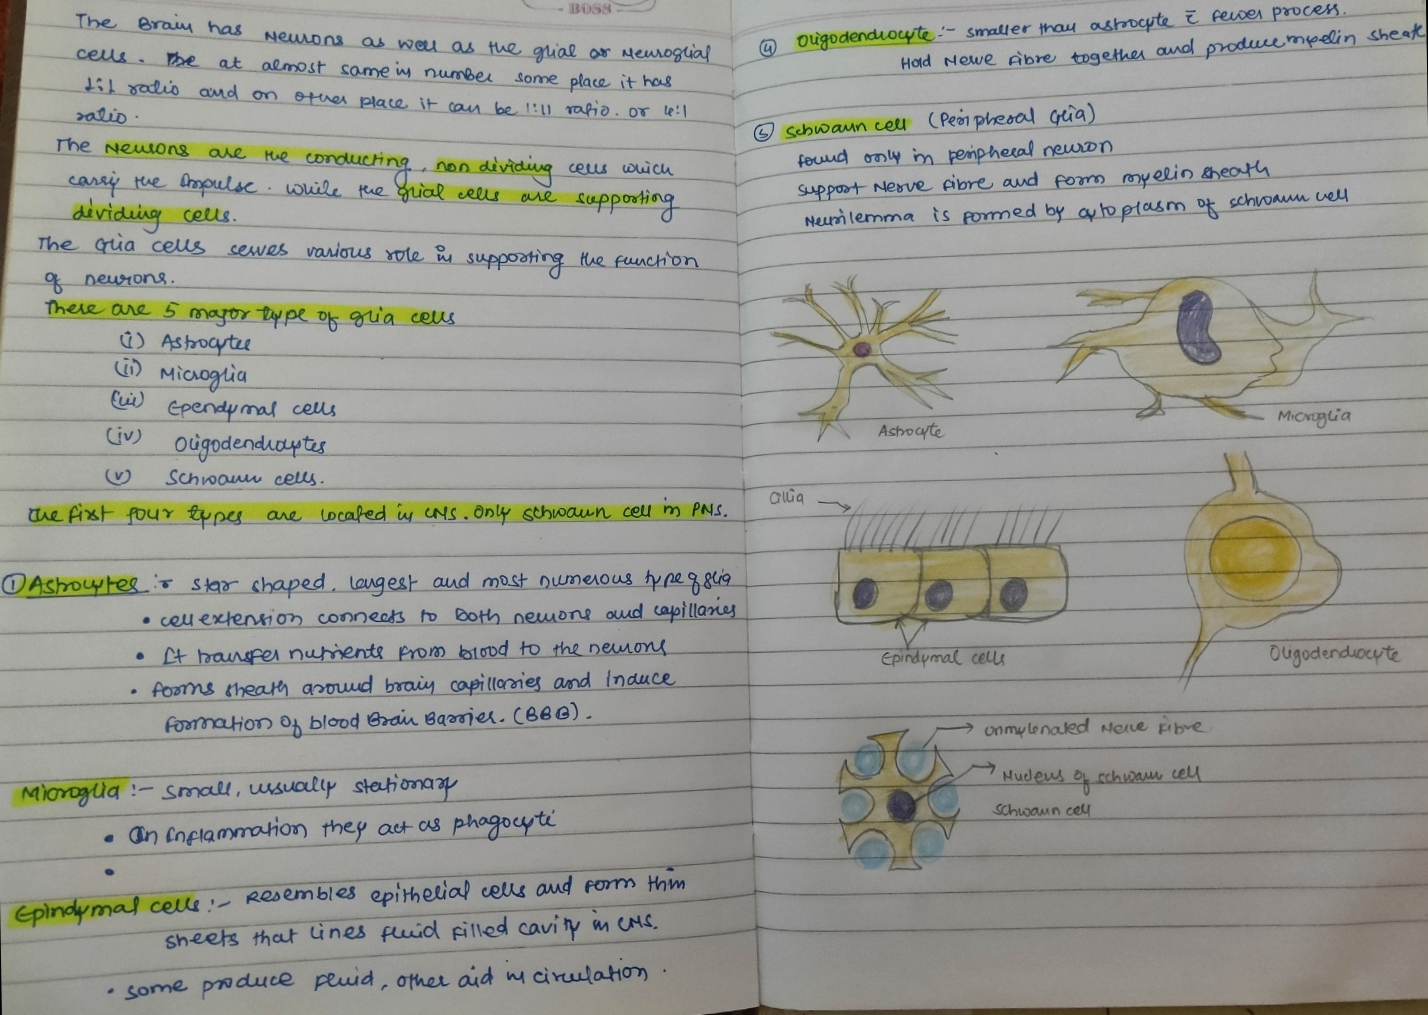 BOSS
The Brain has Neurons as well as the glial or Neuroglial
cells. at almost same in number some place it has
1:1 ratio and on other place it can be 1:11 ratio. or 4:1
ratio.
The Neurons are the conducting, non dividing cells which
carry the Impulse. while the glial cells are supporting
dividing cells.
The Glia cells serves various role in supporting the function
of neurons.
There are 5 major type of glia cells
(i) Astrocytes
(ii) Microglia
(iii) Ependymal cells
(iv) Oligodendrocytes
(v) Schwann cells.
The first four types are located in CNS. Only schwann cell in PNS.
① Astrocytes :- star shaped, largest and most numerous type of glia
• cell extension connects to both neurons and capillaries
• It transfer nutrients from blood to the neurons
• forms sheath around brain capillaries and Induce
formation of blood Brain Barrier. (BBB).
Microglia :- small, usually stationary
• In Inflammation they act as phagocyte
•
Epindymal cells :- Resembles epithelial cells and form thin
sheets that lines fluid filled cavity in CNS.
• some produce fluid, other aid in circulation.
④ Oligodendrocyte :- smaller than astrocyte c̄ fewer process.
Hold Nerve fibre together and produce myelin sheath
⑤ Schwann cell (Peripheral Glia)
found only in peripheral neuron
support Nerve fibre and form myelin sheath
Neurilemma is formed by cytoplasm of schwann cell
Astrocyte
Microglia
Cilia
Epindymal cells
Oligodendrocyte
Unmylenated Nerve Fibre
Nucleus of schwann cell
Schwann cell